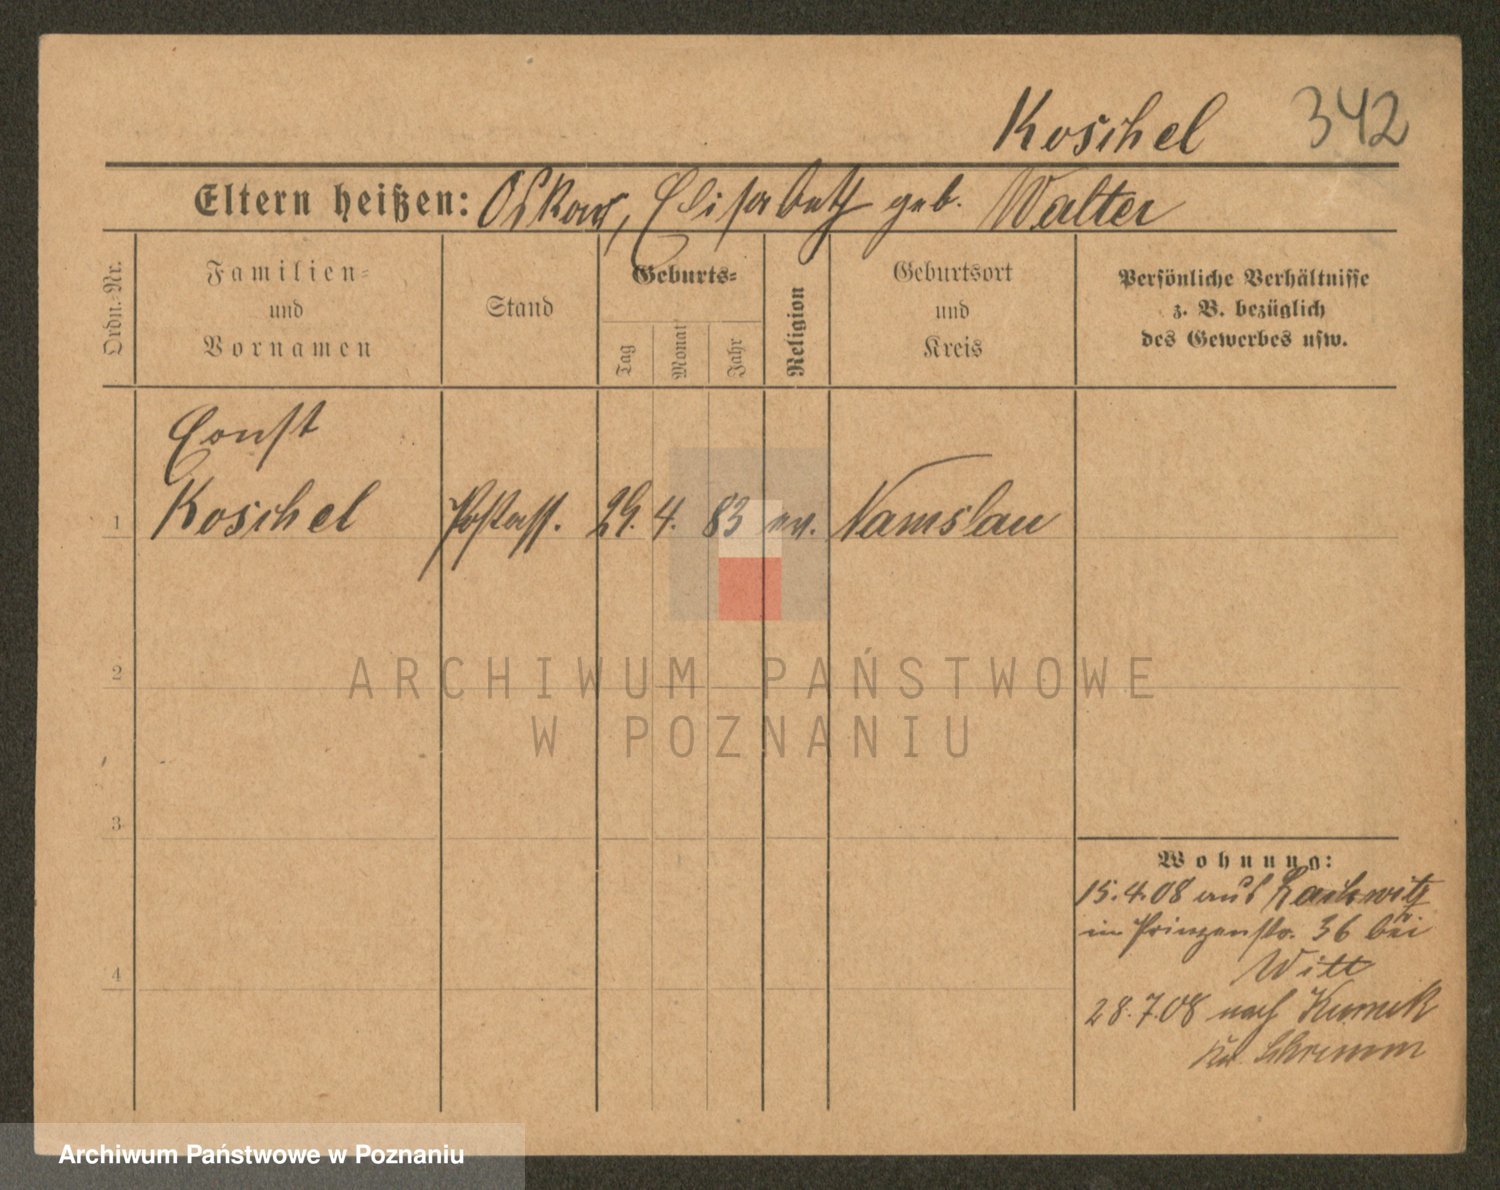 Koschel 342
Eltern heißen: Oskar, Elisabeth geb. Walter
Ordn.-Nr.
Familien- und Vornamen
Stand
Geburts-
Tag
Monat
Jahr
Religion
Geburtsort und Kreis
Persönliche Verhältnisse
z. B. bezüglich
des Gewerbes usw.
Ernst
1 Koschel Postass. 29. 4. 83 ev. Namslau
2
3
4
Wohnung:
15.4.08 aus
in Prinzenstr. 36 bei
Witt
28.7.08 nach
Kr. Schrimm
ARCHIWUM PAŃSTWOWE
W POZNANIU
Archiwum Państwowe w Poznaniu